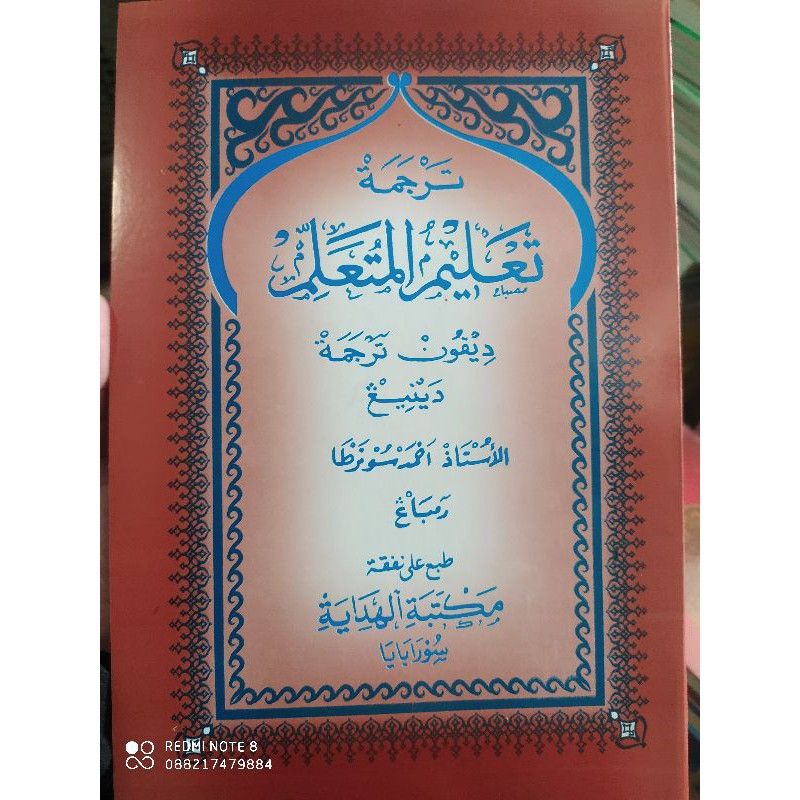 تَرْجَمَةْ
تَعْلِيْمُ الْمُتَعَلِّمْ
دِيْڤُونْ تَرْجَمَةْ
دَيْنِيْڠْ
الأُسْتَاذْ اَحْمَدْ سُوْنَرْطَا
رَمْبَاڠْ
طبع على نفقة
مَكْتَبَةِ الْهِدَايَةْ
سُوْرَابَايَا
REDMI NOTE 8
088217479884